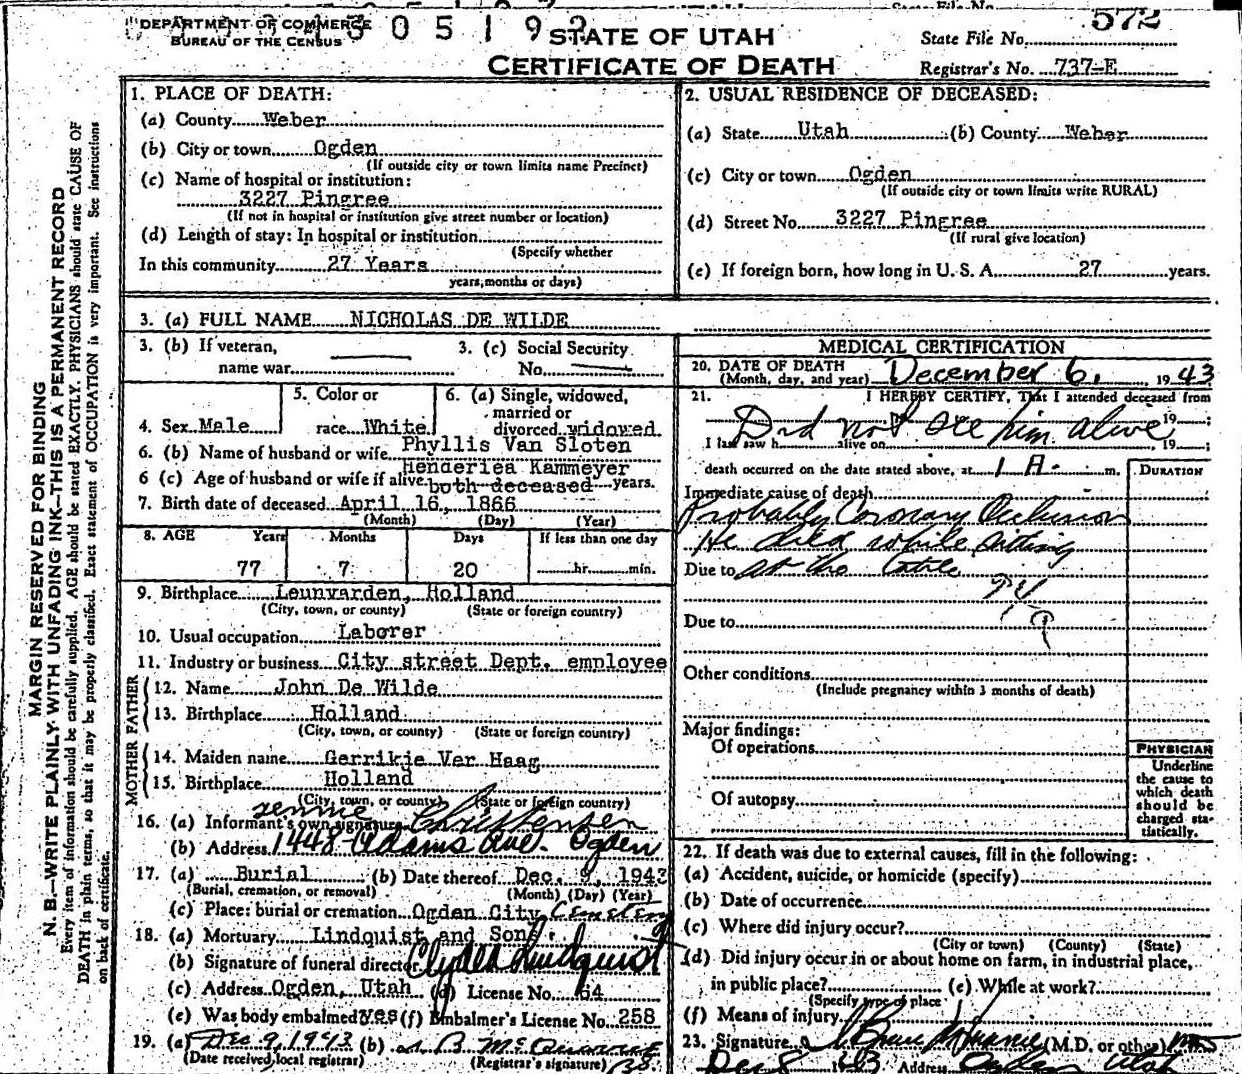 DEPARTMENT OF COMMERCE
BUREAU OF THE CENSUS
0 5 1 9 2
STATE OF UTAH
CERTIFICATE OF DEATH
572
State File No.
Registrar's No. 737-E
MARGIN RESERVED FOR BINDING
N. B.—WRITE PLAINLY WITH UNFADING INK—THIS IS A PERMANENT RECORD
Every item of information should be carefully supplied. AGE should be stated EXACTLY. PHYSICIANS should state CAUSE OF
DEATH in plain terms, so that it may be properly classified. Exact statement of OCCUPATION is very important. See instructions
on back of certificate.
1. PLACE OF DEATH:
(a) County Weber
(b) City or town Ogden
(If outside city or town limits name Precinct)
(c) Name of hospital or institution:
3227 Pingree
(If not in hospital or institution give street number or location)
(d) Length of stay: In hospital or institution
(Specify whether
In this community 27 Years
years, months or days)
2. USUAL RESIDENCE OF DECEASED:
(a) State Utah (b) County Weber
(c) City or town Ogden
(If outside city or town limits write RURAL)
(d) Street No. 3227 Pingree
(If rural give location)
(e) If foreign born, how long in U. S. A. 27 years.
3. (a) FULL NAME NICHOLAS DE WILDE
3. (b) If veteran,
name war
3. (c) Social Security
No.
4. Sex Male
5. Color or
race White
6. (a) Single, widowed,
married or
divorced widowed
6. (b) Name of husband or wife Phyllis Van Sloten
Henderiea Kammeyer
6 (c) Age of husband or wife if alive both deceased years.
7. Birth date of deceased April 16, 1866
(Month) (Day) (Year)
8. AGE Years Months Days If less than one day
77 7 20 hr. min.
9. Birthplace Leunvarden, Holland
(City, town, or county) (State or foreign country)
10. Usual occupation Laborer
11. Industry or business City street Dept. employee
FATHER
12. Name John De Wilde
13. Birthplace Holland
(City, town, or county) (State or foreign country)
MOTHER
14. Maiden name Gerrikje Ver Haag
15. Birthplace Holland
(City, town, or county) (State or foreign country)
16. (a) Informant's own signature Jennie Christensen
(b) Address 1448 Adams Ave. Ogden
17. (a) Burial (b) Date thereof Dec. 9, 1943
(Burial, cremation, or removal) (Month) (Day) (Year)
(c) Place: burial or cremation Ogden City Cemetery
18. (a) Mortuary Lindquist and Sons
(b) Signature of funeral director Clyde Lindquist
(c) Address Ogden, Utah (d) License No. 64
(e) Was body embalmed? yes (f) Embalmer's License No. 258
19. (a) Dec 9, 1943 (b)
(Date received local registrar) (Registrar's signature)
MEDICAL CERTIFICATION
20. DATE OF DEATH
(Month, day, and year) December 6, 1943
21. I HEREBY CERTIFY, That I attended deceased from
Did not see him alive 19 ;
I last saw h alive on 19 ;
death occurred on the date stated above, at 1 A. m.
DURATION
Immediate cause of death
Probably Coronary Occlusion
He died while sitting
Due to at the table
Due to
Other conditions
(Include pregnancy within 3 months of death)
Major findings:
Of operations
Of autopsy
PHYSICIAN
Underline
the cause to
which death
should be
charged sta-
tistically.
22. If death was due to external causes, fill in the following:
(a) Accident, suicide, or homicide (specify)
(b) Date of occurrence
(c) Where did injury occur?
(City or town) (County) (State)
(d) Did injury occur in or about home on farm, in industrial place,
in public place? (e) While at work?
(Specify type of place
(f) Means of injury
23. Signature (M.D. or other)
Dec 8 1943 Address Ogden Utah